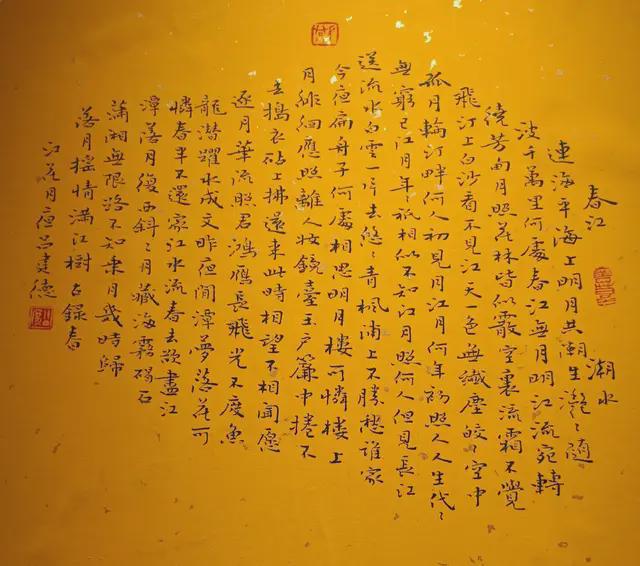 春江 潮水
連海平海上明月共潮生灧〻随
波千萬里何處春江無月明江流宛轉
繞芳甸月照花林皆似霰空裏流霜不覺
飛汀上白沙看不見江天一色無纖塵皎〻空中
孤月輪江畔何人初見月江月何年初照人人生代〻
無窮已江月年祇相似不知江月照何人但見長江
送流水白雲一片去悠〻青楓浦上不勝愁誰家
今夜扁舟子何處相思明月樓可憐樓上
月徘徊應照離人妝鏡臺玉户簾中捲不
去搗衣砧上拂還來此時相望不相聞願
逐月華流照君鴻鴈長飛光不度魚
龍潛躍水成文昨夜閒潭夢落花可
憐春半不還家江水流春去欲盡江
潭落月復西斜〻月藏海霧碣石
瀟湘無限路不知乘月幾時歸
落月摇情滿江樹右錄春
江花月夜吕建德